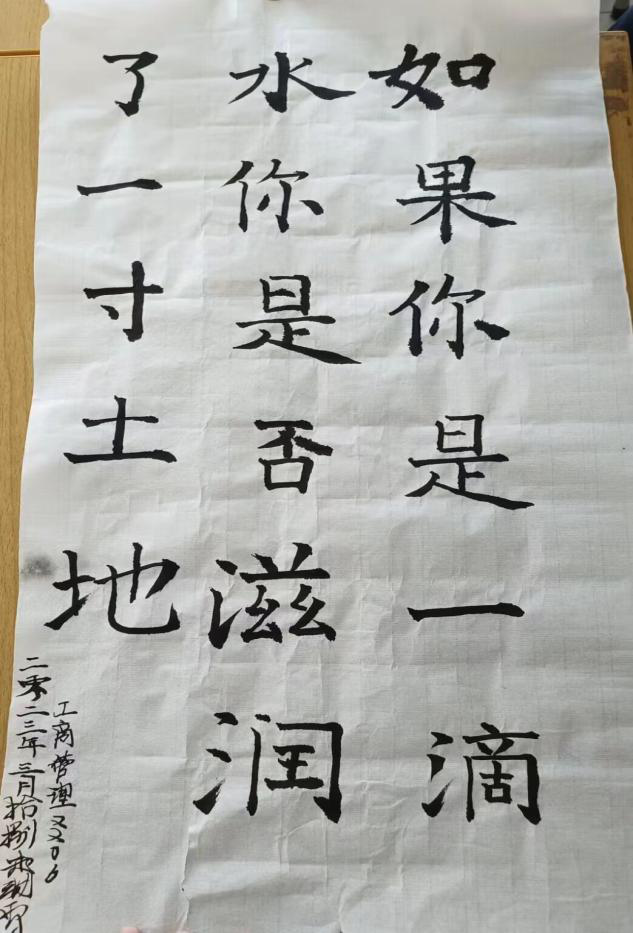 如果你是一滴
水你是否滋润
了一寸土地
工商管理2206
二零二三年三月拾捌